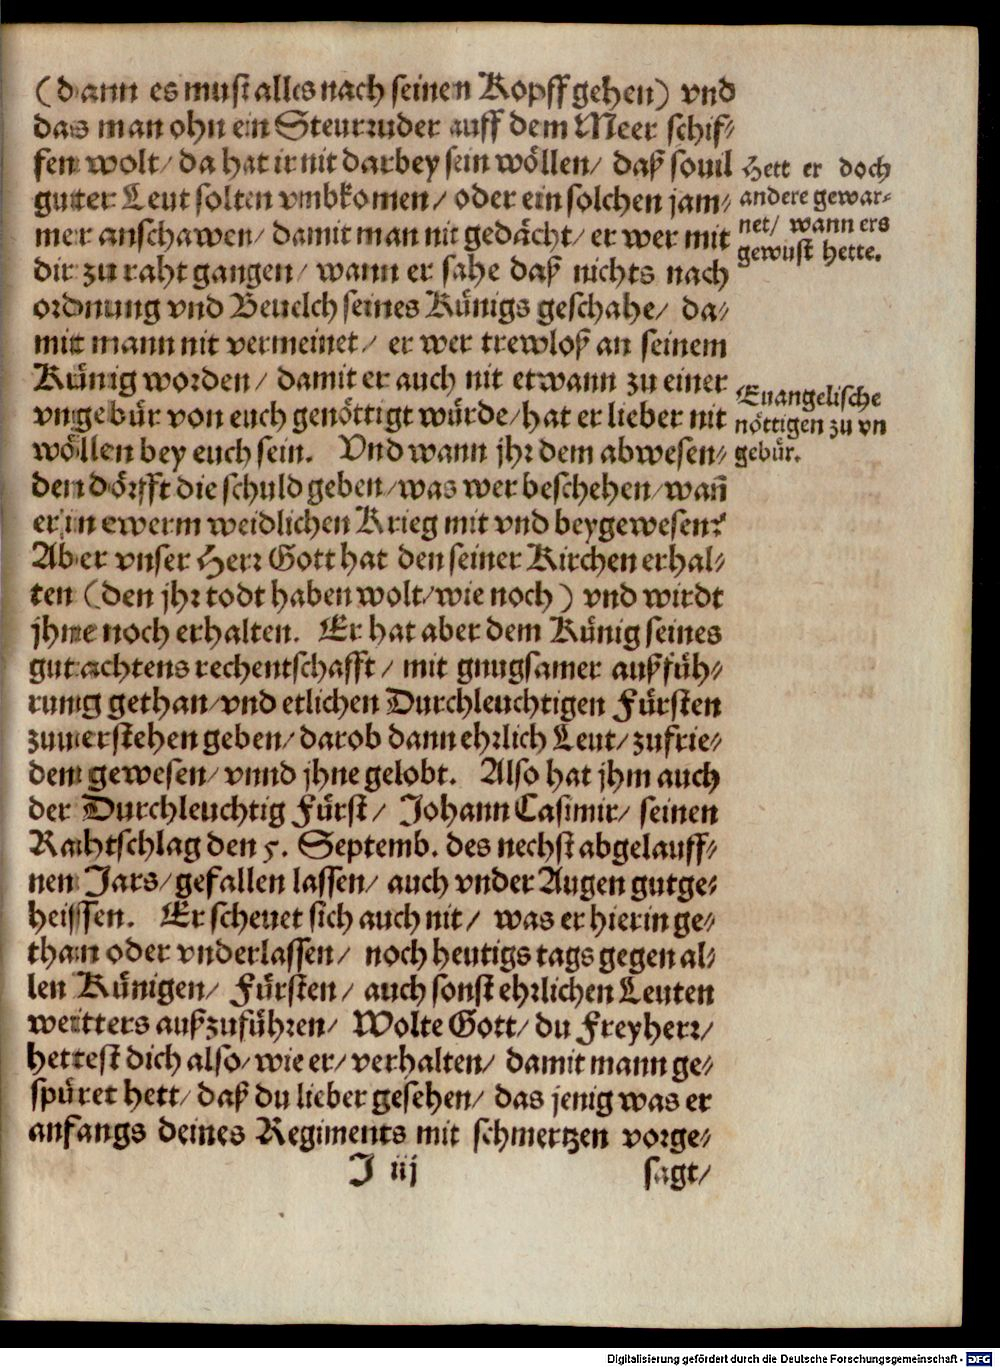 (dann es must alles nach seinen Kopff gehen) vnd
das man ohn ein Steurruder auff dem Meer schif⸗
fen wolt/ da hat ir nit darbey sein wöllen/ daß souil
gutter Leut solten vmbkomen/ oder ein solchen jam⸗
mer anschawen/ damit man nit gedächt/ er wer mit
dir zu raht gangen/ wann er sahe daß nichts nach
ordnung vnd Beuelch seines Künigs geschahe/ da⸗
mit mann nit vermeinet/ er wer trewloß an seinem
Künig worden/ damit er auch nit etwann zu einer
vngebür von euch genöttigt würde/ hat er lieber nit
wöllen bey euch sein. Vnd wann jhr dem abwesen⸗
den dörfft die schuld geben/ was wer beschehen/ wañ
er in ewerm weidlichen Krieg mit vnd beygewesen?
Aber vnser Herr Gott hat den seiner Kirchen erhal⸗
ten (den jhr todt haben wolt/ wie noch) vnd wirdt
jhne noch erhalten. Er hat aber dem Künig seines
gutachtens rechentschafft/ mit gnugsamer außfüh⸗
rung gethan/ vnd etlichen Durchleuchtigen Fürsten
zuuerstehen geben/ darob dann ehrlich Leut/ zufrie⸗
den gewesen/ vnnd jhne gelobt. Also hat jhm auch
der Durchleuchtig Fürst/ Johann Casimir/ seinen
Rahtschlag den 5. Septemb. des nechst abgelauff⸗
nen Jars/ gefallen lassen/ auch vnder Augen gutge⸗
heissen. Er scheuet sich auch nit/ was er hierin ge⸗
than oder vnderlassen/ noch heutigs tags gegen al⸗
len Künigen/ Fürsten/ auch sonst ehrlichen Leuten
weitters außzuführen/ Wolte Gott/ du Freyherr/
hettest dich also/ wie er/ verhalten/ damit mann ge⸗
spüret hett/ daß du lieber gesehen/ das jenig was er
anfangs deines Regiments mit schmertzen vorge⸗
J iij
sagt/
Hett er doch
andere gewar⸗
net/ wann ers
gewust hette.
Euangelische
nöttigen zu vn
gebür.
Digitalisierung gefördert durch die Deutsche Forschungsgemeinschaft - DFG